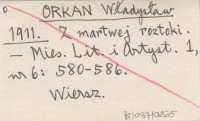 ORKAN Władysław
1911. Z martwej roztoki.
— Mies. Lit. i Artyst. 1,
nr 6: 580-586.
Wiersz.